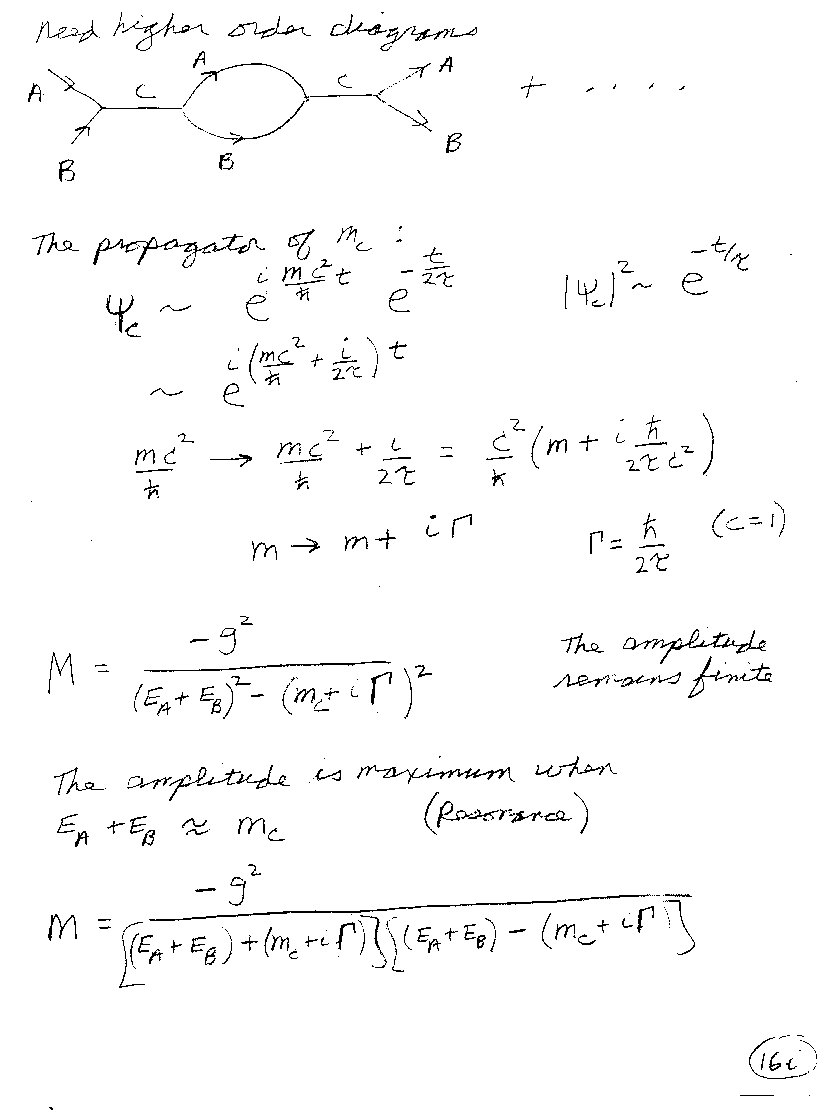 Need higher order diagrams
A C A B C A B + . . . .
B
The propagator of m_c :
Ψ_c ~ e^{i mc²/ħ t} e^{-t/2τ} |Ψ_c|² ~ e^{-t/τ}
~ e^{i(mc²/ħ + i/2τ)t}
mc²/ħ → mc²/ħ + i/2τ = c²/ħ (m + i ħ/2τc²)
m → m + iΓ Γ = ħ/2τ (c=1)
M = -g² / (E_A + E_B)² - (m_c + iΓ)² The amplitude
remains finite
The amplitude is maximum when
E_A + E_B ≈ m_c (Resonance)
M = -g² / [(E_A + E_B) + (m_c + iΓ)][(E_A + E_B) - (m_c + iΓ)]
16i